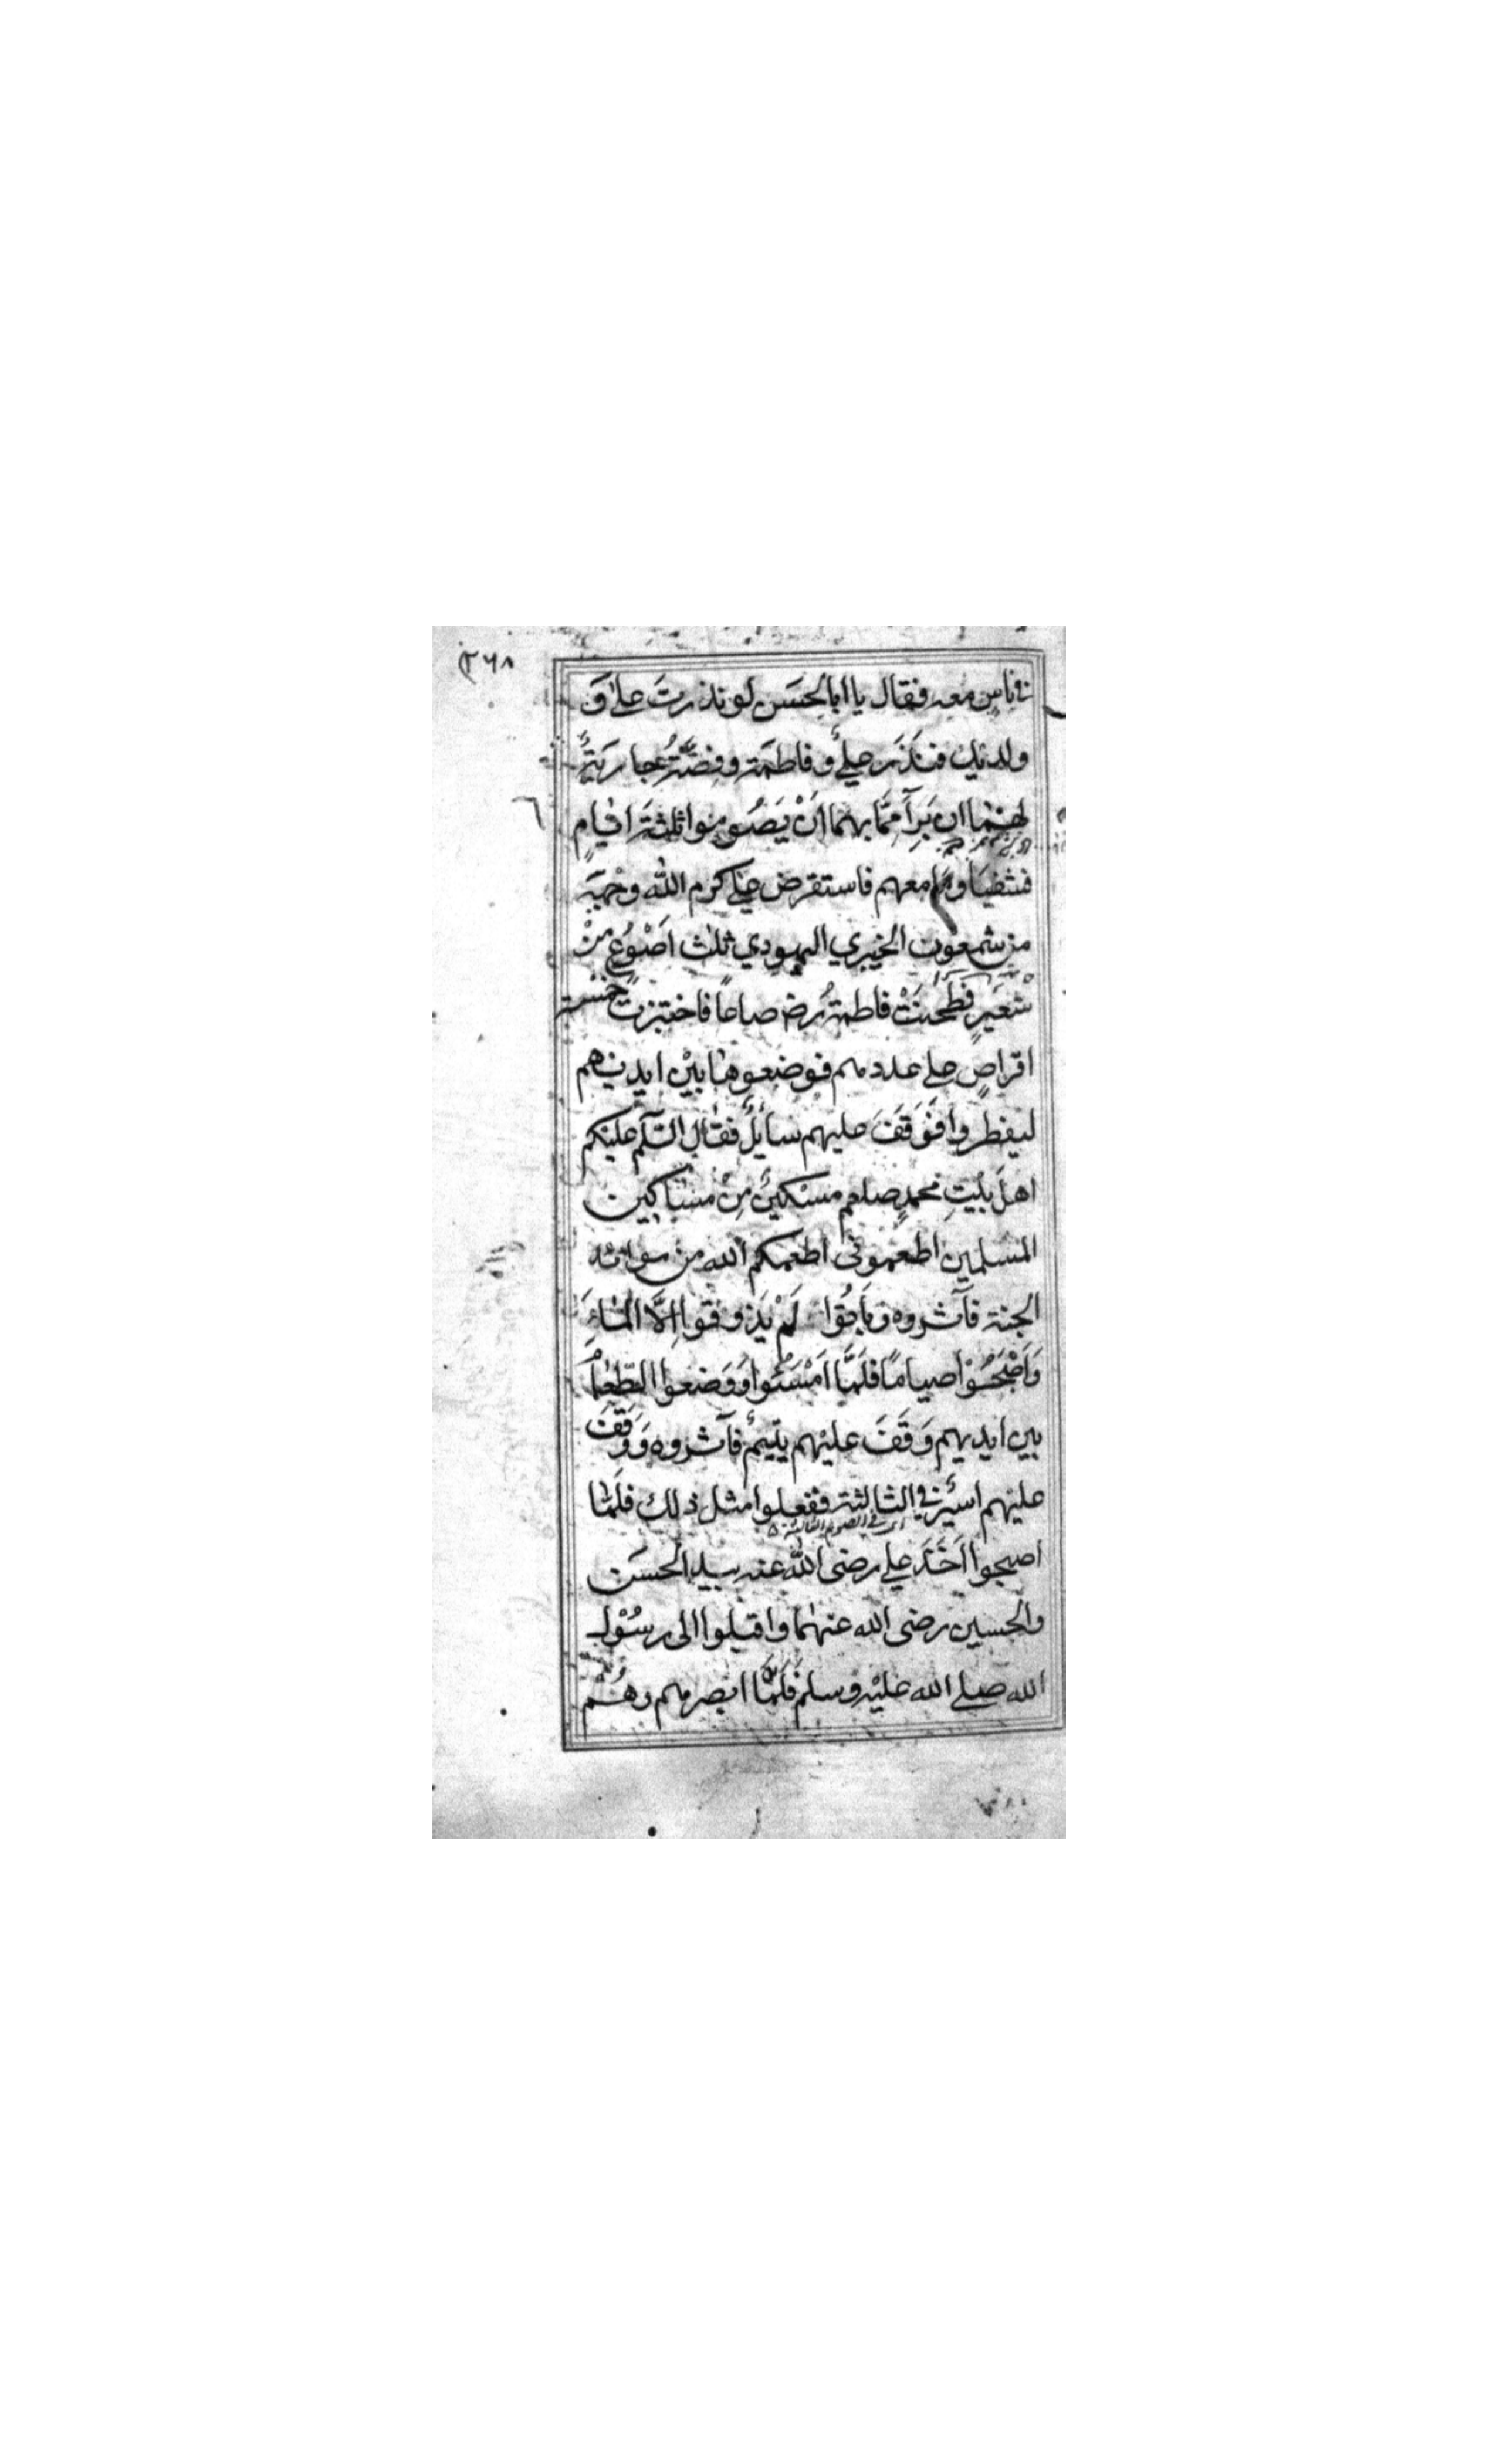 ٢٦٨
في ناس معه فقال يا ابا الحسَن لو نذرتَ علٰى وَ
ولديك فنَذَر عليٌّ وفاطمة وفِضَّةُ جارِيَةٌ
لهمَا ان بَرِأَ مِمَّا بهمَا اَنْ يَصُوموا ثلٰثةَ ايامٍ
فشفيَا وما معهم فاستقرض علي كرم اللّٰه وجهَهٗ
من شمعون الخيبري اليهودي ثلٰث اَصْوُعٍ مِنْ
شَعيرٍ فَطَحَنَتْ فاطمةُ رض صاعًا فاختبزتْ خمْسة
اقراصٍ على عددهم فوضعوها بيْن ايديهم
ليفطروا فَوَقَفَ عليهم سائلٌ فقال السّلٰم عليكم
اهلَ بيْتِ محمدٍ صلعم مسْكينٌ مِنْ مسَاكين
المسْلمين اطعموني اطعمكم اللّٰه من موائد
الجنة فآثروه وباتُوا لَمْ يَذوقوا اِلَّا المَاءَ
وَاَصْبَحُوْا صيامًا فلَمَّا اَمْسَوْا ووَضعوا الطّعامَ
بين ايديهم وَقَفَ عليْهم يتيمٌ فآثروه وَوَقَفَ
عليْهم اسيْرٌ في الثالثة ففعلوا مثل ذٰلك فلَمَّا
اى في الصوم الثالثة
اصبحوا اَخَذَ علي رضى اللّٰه عنه بيد الحسَن
والحسين رضى اللّٰه عنهمَا واقبلوا الى رسُوْل
اللّٰه صلى اللّٰه عليْه وسلم فلَمَّا ابصرهم وهُمْ